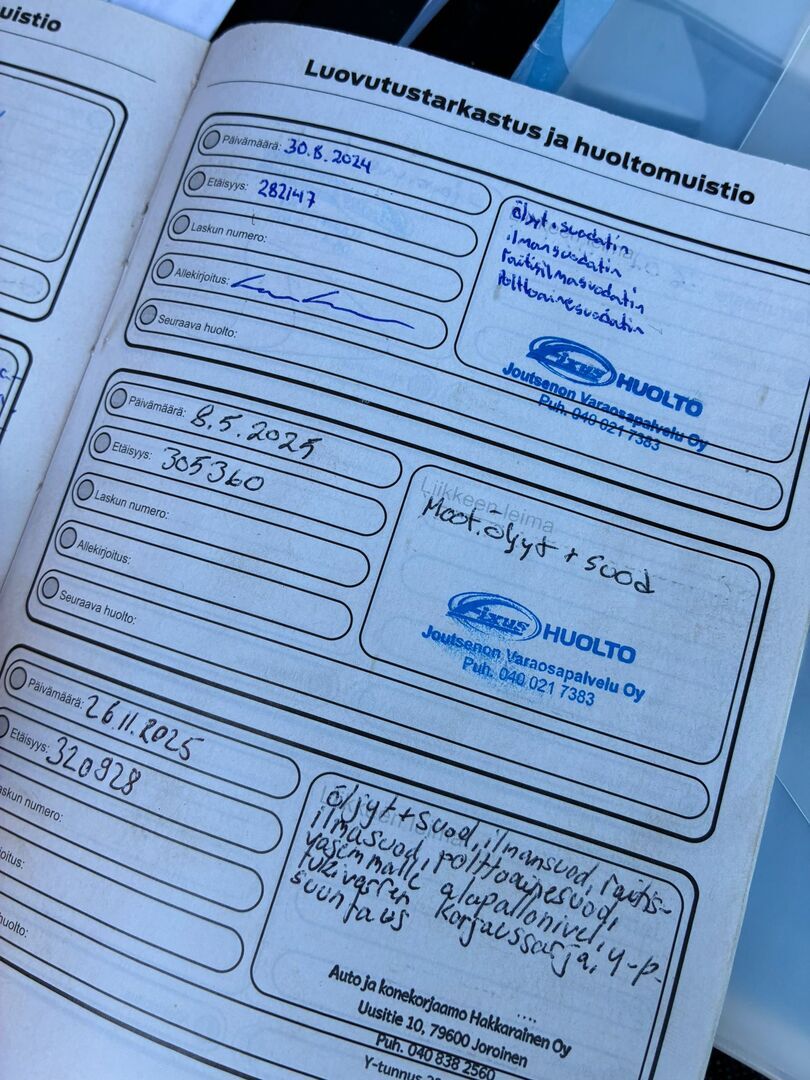 uistio
Luovutustarkastus ja huoltomuistio
Päivämäärä: 30.8.2024
Etäisyys: 282147
Laskun numero:
Allekirjoitus:
Seuraava huolto:
öljyt + suodatin
ilmansuodatin
raitisilmasuodatin
Polttoainesuodatin
Fixus HUOLTO
Joutsenon Varaosapalvelu Oy
Puh. 040 021 7383
Päivämäärä: 8.5.2025
Etäisyys: 305360
Laskun numero:
Allekirjoitus:
Seuraava huolto:
Liikkeen leima
Moot.öljyt + suod
Fixus HUOLTO
Joutsenon Varaosapalvelu Oy
Puh. 040 021 7383
Päivämäärä: 26.11.2025
Etäisyys: 320928
askun numero:
oitus:
huolto:
öljyt + suod, ilmansuod, raitis-
ilmasuod, polttoainesuod,
vasemmalle alapallonivel, y-p-
tukivarren korjaussarja,
suuntaus
Auto ja konekorjaamo Hakkarainen Oy
Uusitie 10, 79600 Joroinen
Puh. 040 838 2560
Y-tunnus